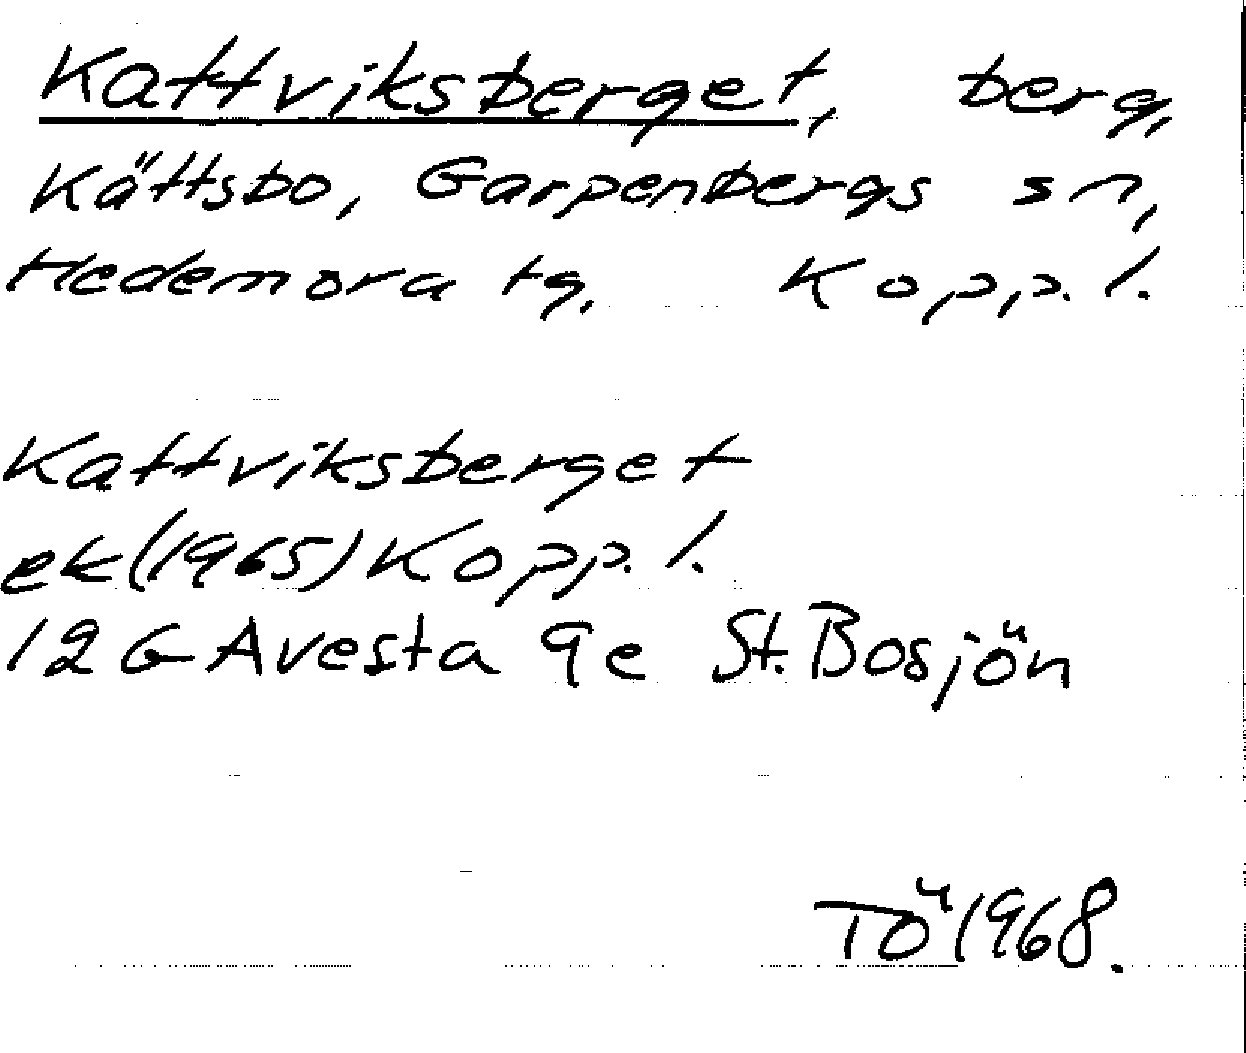 Kattviksberget, berg,
Kättsbo, Garpenbergs sn,
Hedemora tg. Kopp. l.
Kattviksberget
ek (1965) Kopp. l.
12 G Avesta 9e St. Bosjön
TÖ 1968.